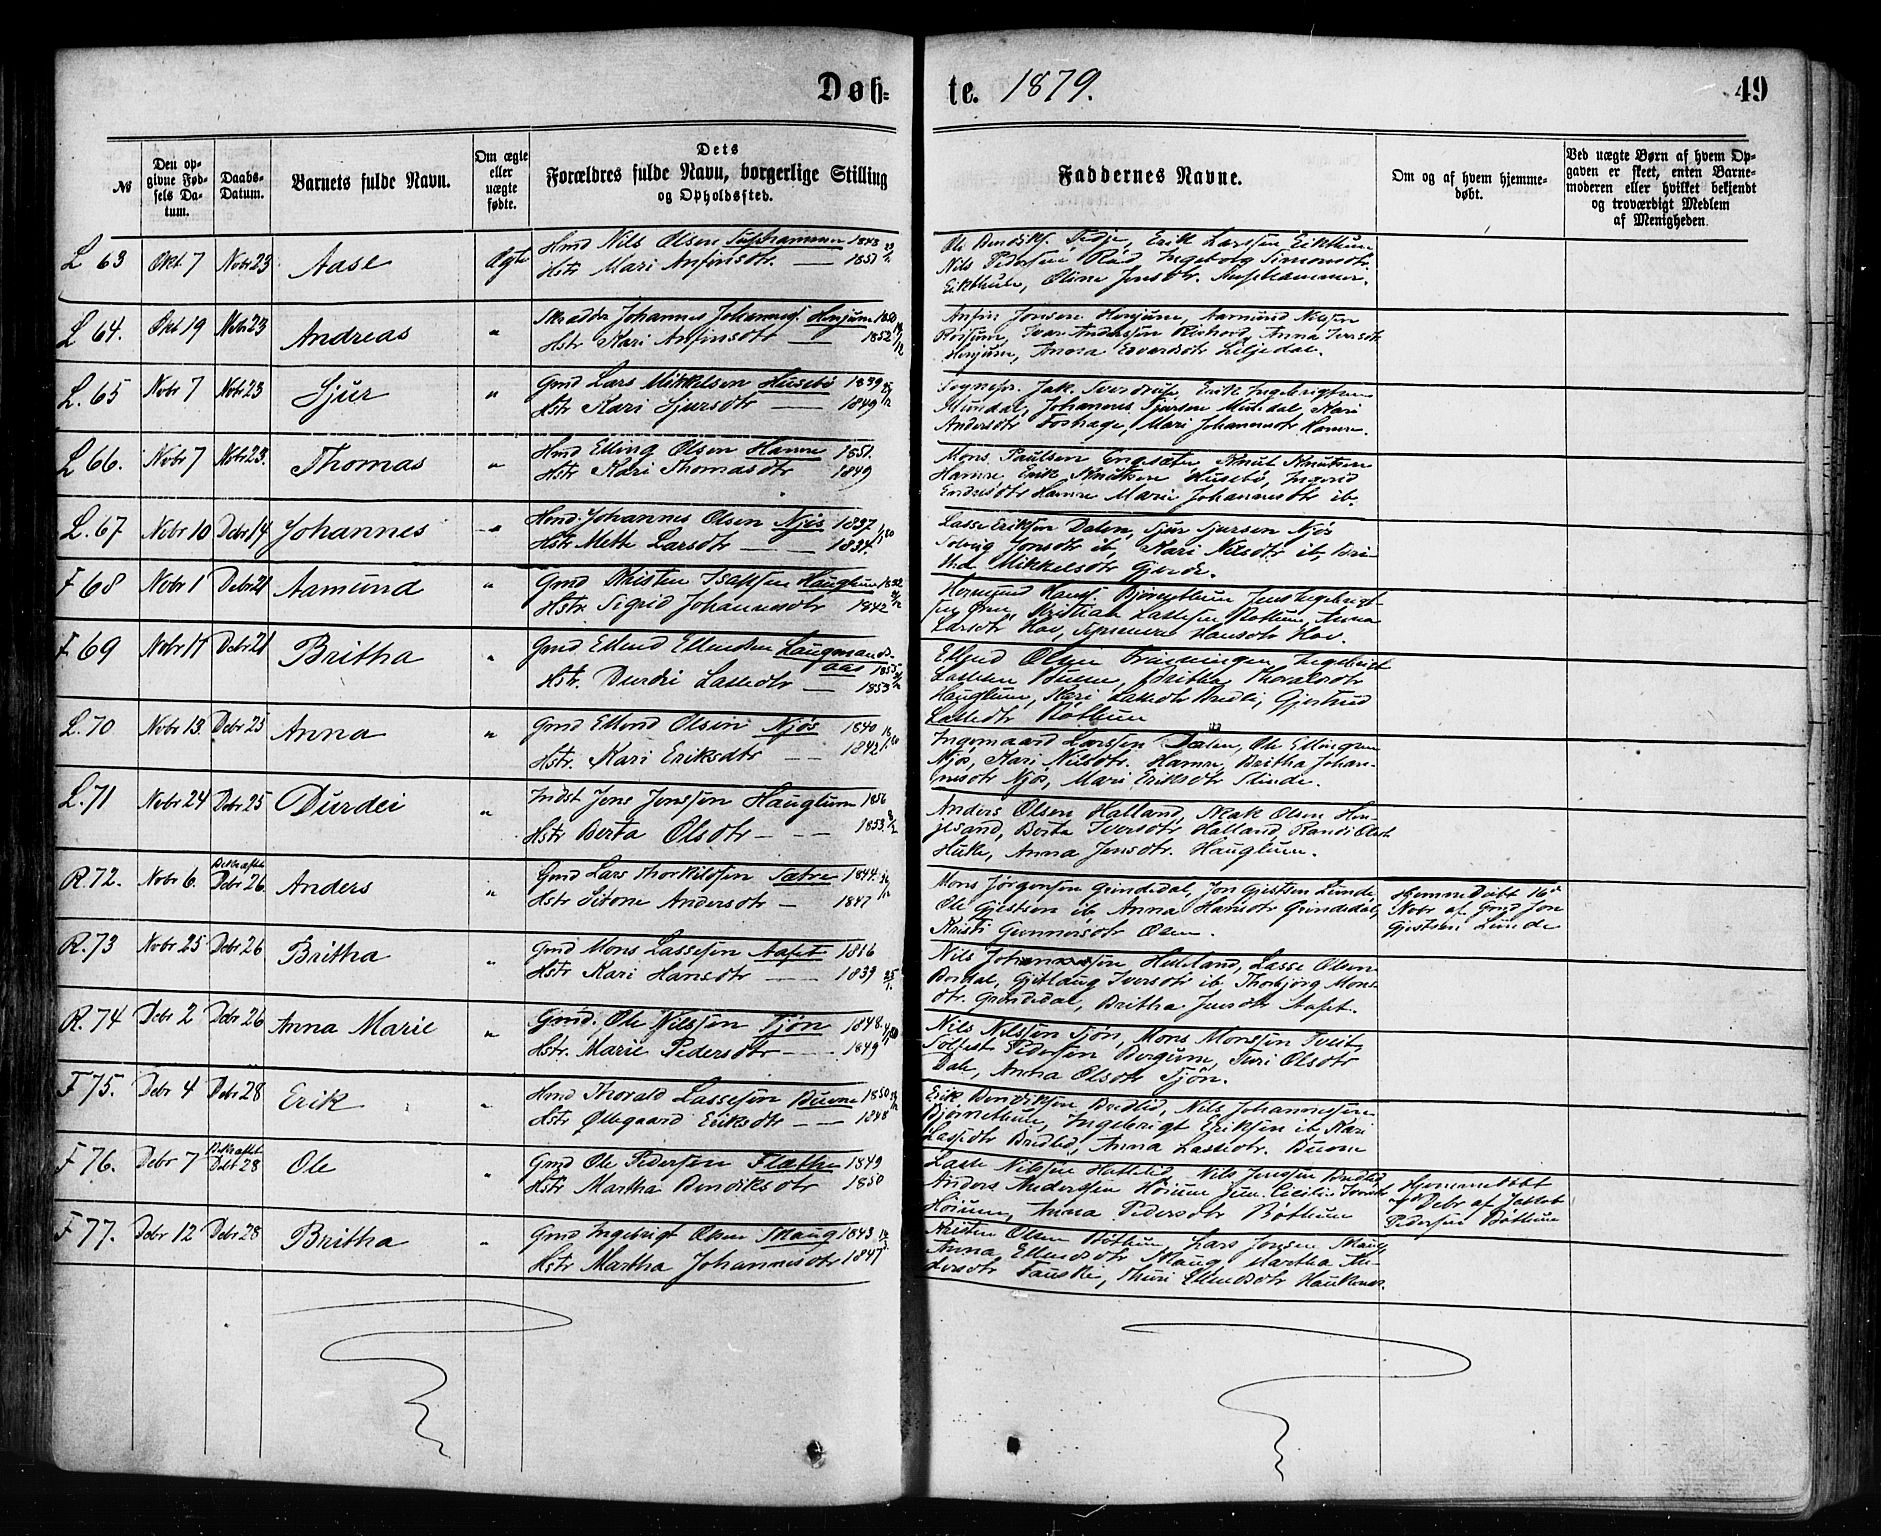 Døb-
te. 1879.
49
№
Den op-
givne Fød-
sels Da-
tum.
Daabs-
Datum.
Barnets fulde Navn.
Om ægte
eller
uægte
fødte.
Dets
Forældres fulde Navn, borgerlige Stilling
og Opholdssted.
Faddernes Navne.
Om og af hvem hjemme-
døbt.
Ved uægte Børn af hvem Op-
gaven er skeet, enten Barne-
moderen eller hvilket bekjendt
og troværdigt Medlem
af Menigheden.
L 63 Okt 7 Nobr 23 Aase Ægte Hmd Nils Olsen 1843
Hstr Mari Anfinsdtr. — 1851
Ole Bendiks. Tedje, Erik Larssen Eikthun
Nils Pedersen Rud, Ingeborg Simonsdtr.
Eikthun, Oline Jensdtr.
L 64. Okt 19 Nobr 23 Andreas " Skrædder Johannes Johanness. Henjum 1850
Hstr Kari Anfinsdtr — 1852
Anfin Jonsen Henjum, Aamund Nilsen
Røisum, Ivar Andersen Rishovd, Anna Iversdtr
Henjum, Anna Edvardsdtr Liljedal.
L. 65 Nobr 7 Nobr 23 Sjur " Gmd Lars Mikkelsen Husebø 1839
Hstr Kari Sjursdtr — 1849
Sognepr. Jak. Sverdrup, Erik Ingebrigtsen
Mundal, Johannes Sjursen Mundal, Kari
Andersdtr Foshage, Mari Johannsdtr Hamre.
L 66. Nobr 7 Nobr 23. Thomas " Hmd Elling Olsen Hamre 1851.
Hstr Kari Thomasdtr 1849
Mons Paulsen Engesæter, Knut Knutsen
Hamre, Erik Knutsen Husebø, Ingrid
Endresdtr Hamre Marie Johannesdtr ib.
L. 67 Nobr 10 Debr 14 Johannes " Hmd. Johannes Olsen Njøs 1837
Hstr Mette Larsdtr — 1834.
Lasse Eriksen Dalen, Sjur Sjursen Njøs
Solveig Jonsdtr ib, Kari Nilsdtr ib,
Mikkelsdtr Gjerde.
F 68 Nobr 1 Debr 21 Aamund " Gmd Kristen Isaksen Hauglum 1832
Hstr Sigrid Johannesdtr 1842
Hermund Hanss. Bjørnethun Jens Ingebrigt-
sen Øren, Kristian Lassesen Bøthun, Anna
Larsdtr Hov, Hansdtr Hov.
F 69 Nobr 11 Debr 21 Britha " Gmd Ellend Ellendsen Laugmands-
aas 1855
Hstr. Durdei Lassedtr — 1853
Ellend Olsen Ingebrigt
Lassesen Buene, Britha Thoraldsdtr
Hauglum, Kari Lassedtr Bredli, Gjertrud
Lassedtr Bøthun
L. 70 Nobr 13. Debr 25 Anna " Gmd Ellend Olsen Njøs 1840
Hstr. Kari Eriksdtr — 1842
Ingemaard Larssen Dalen, Ole Ellingsen
Njøs, Kari Nilsdtr. Hamre, Britha Johan-
nesdtr Njøs, Mari Eriksdtr Slinde.
L. 71 Nobr 24 Debr 25 Durdei " Indst Jens Jenssen Hauglum 1856
Hstr Berta Olsdtr — 1853
Anders Olsen Halland, Isak Olsen Hen-
jesand, Berta Iversdtr Halland, Randi Olsdtr
Huke, Anna Jensdtr. Hauglum.
R. 72. Nobr 6. Bekræftet
Debr 26 Anders " Gmd Lars Thorkildsen Sætre 1844
Hstr Sitone Andersdtr — 1847
Mons Jørgensen Grindedal, Jon Gjestsen Lunde
Ole Gjestsen ib Anna Hansdtr Grindedal,
Kristi Gunnersdtr Olsen.
Hjemmedøbt 16d
Nobr af Gmd Jon
Gjestsen Lunde
R. 73 Nobr 25 Debr 26 Britha " Gmd Mons Lassesen Aafet 1846
Hstr Kari Hansdtr — 1839
Nils Johannessen Hedeland, Lasse Olsen
Gjetlaug Iversdtr ib Thorbjørg Mons-
dtr. Grindedal, Britha Jensdtr Aafet.
R. 74 Debr 2 Debr 26 Anna Marie " Gmd. Ole Nilssen Tjøn 1848.
Hstr. Marie Pedersdtr — 1849
Nils Nilssen Tjøn, Mons Monssen Tveit
Tolleif Pedersen Bergum, Turi Olsdtr
Dale, Anna Olsdtr Tjøn.
F 75. Debr 4 Debr 28 Erik " Hmd Thorald Lassesen Buene 1850
Hstr Øllegaard Eriksdtr — 1848
Erik Bendiksen Bredlid, Nils Johannessen
Bjørnethun, Ingebrigt Eriksen ib Kari
Lassedtr Bredlid, Anna Lassedtr. Buene
F 76. Debr 7 Bekræftet
Debr 28 Ole " Gmd Ole Pedersen Flæthe 1849
Hstr Martha Bendiksdtr 1850
Lasse Nilssen Hattelid, Nils Jenssen Bredlid
Anders Anderssen Høium Jun. Cecilie
Høium, Anna Pedersdtr Bøthun
Hjemmedøbt
Debr af Jakob
Pedersen Bøthun
F 77. Debr 12 Debr 28 Britha " Gmd Ingebrigt Olsen Skaug 1843
Hstr Martha Johannesdtr 1847
Kristen Olsen Bøthun, Lars Jensen Skaug
Anna Ellendsdtr Skaug Martha An-
dersdtr Fauske, Thuri Ellendsdtr